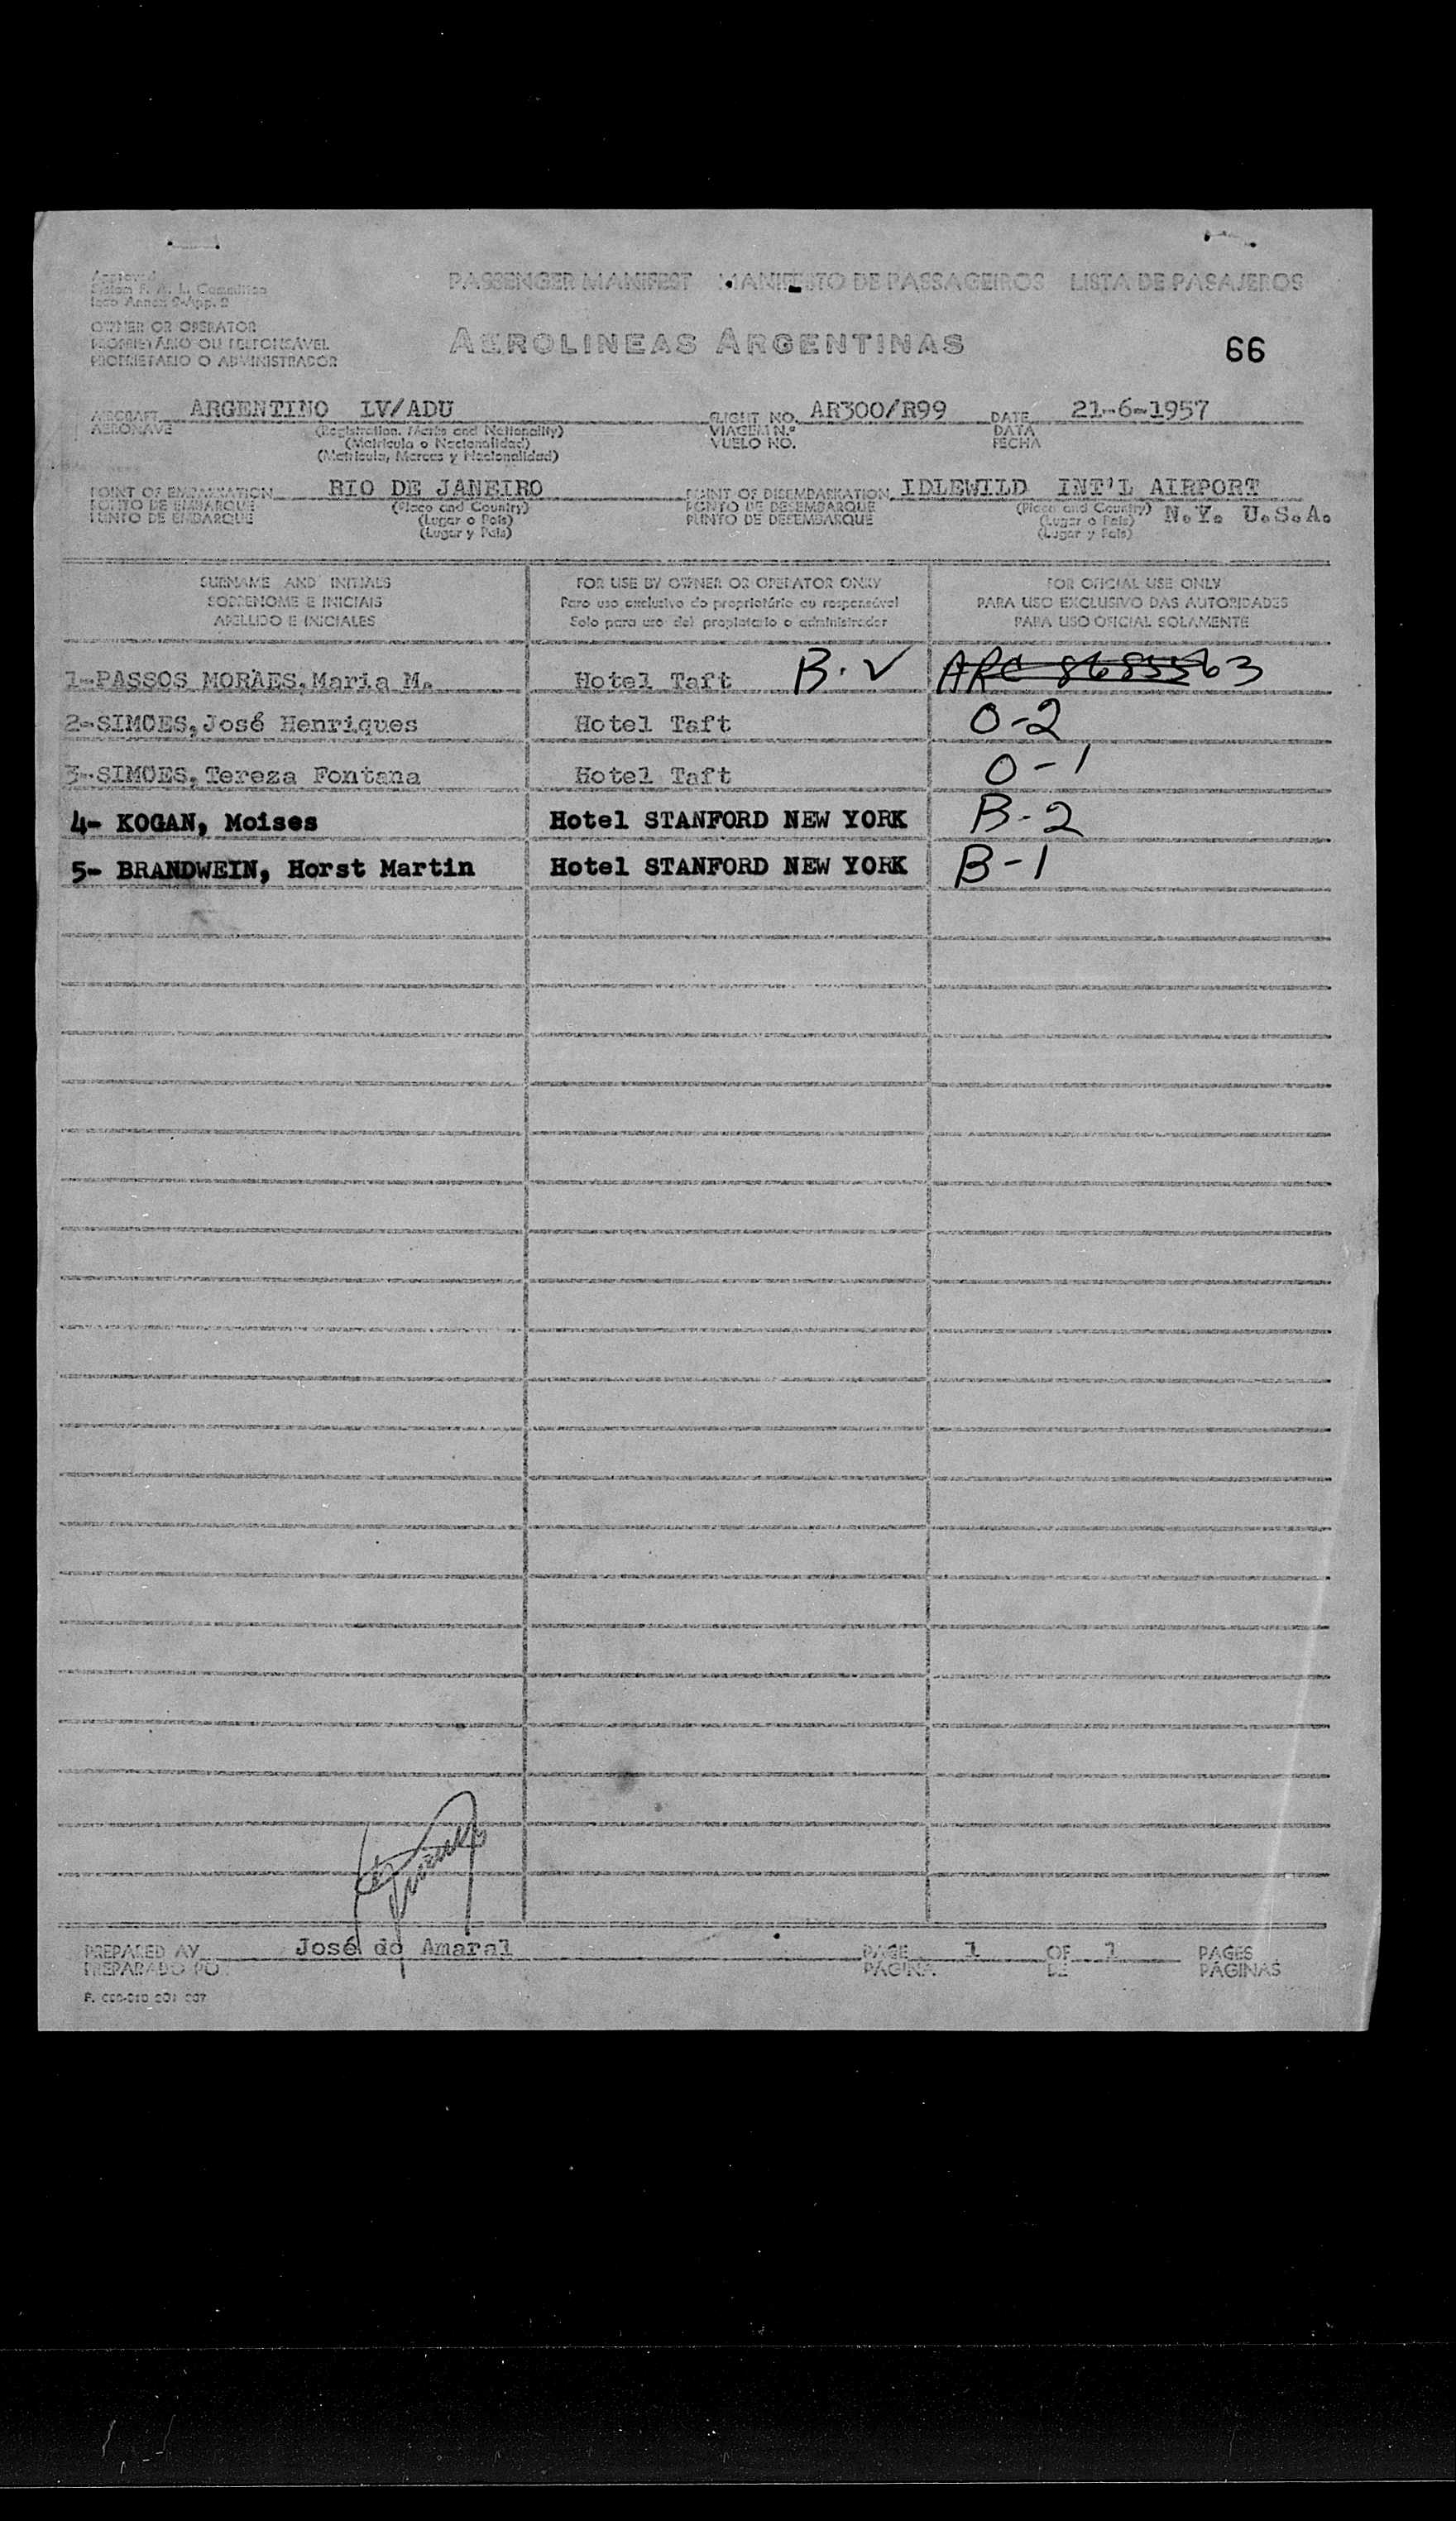 PASSENGER MANIFEST MANIFESTO DE PASSAGEIROS LISTA DE PASAJEROS
OWNER OR OPERATOR
PROPRIETÁRIO OU RESPONSÁVEL
PROPIETARIO O ADMINISTRADOR
AEROLINEAS ARGENTINAS
66
AIRCRAFT ARGENTINO LV/ADU FLIGHT NO. AR300/R99 DATE 21-6-1957
AERONAVE (Registration, Marks and Nationality) VIAGEM N.º DATA
(Matrícula e Nacionalidad) VUELO NO. FECHA
(Matricula, Marcas y Nacionalidad)
POINT OF EMBARKATION RIO DE JANEIRO POINT OF DISEMBARKATION IDLEWILD INT'L AIRPORT
PONTO DE EMBARQUE (Place and Country) PONTO DE DESEMBARQUE (Place and Country) N.Y. U.S.A.
PUNTO DE EMBARQUE (Lugar o País) PUNTO DE DESEMBARQUE (Lugar o País)
(Lugar y País) (Lugar y País)
SURNAME AND INITIALS FOR USE BY OWNER OR OPERATOR ONLY FOR OFICIAL USE ONLY
SOBRENOME E INICIAIS Para uso exclusivo do proprietário ou responsável PARA USO EXCLUSIVO DAS AUTORIDADES
APELLIDO E INICIALES Solo para uso del propietario o administrador PARA USO OFICIAL SOLAMENTE
1-PASSOS MORAES,Maria M. Hotel Taft B.V
2-SIMOES,José Henriques Hotel Taft O-2
3-SIMOES,Tereza Fontana Hotel Taft O-1
4- KOGAN, Moises Hotel STANFORD NEW YORK B-2
5- BRANDWEIN, Horst Martin Hotel STANFORD NEW YORK B-1
PREPARED AV José do Amaral PAGE 1 OF 1 PAGES
PREPARADO PO PÁGINA DE PÁGINAS